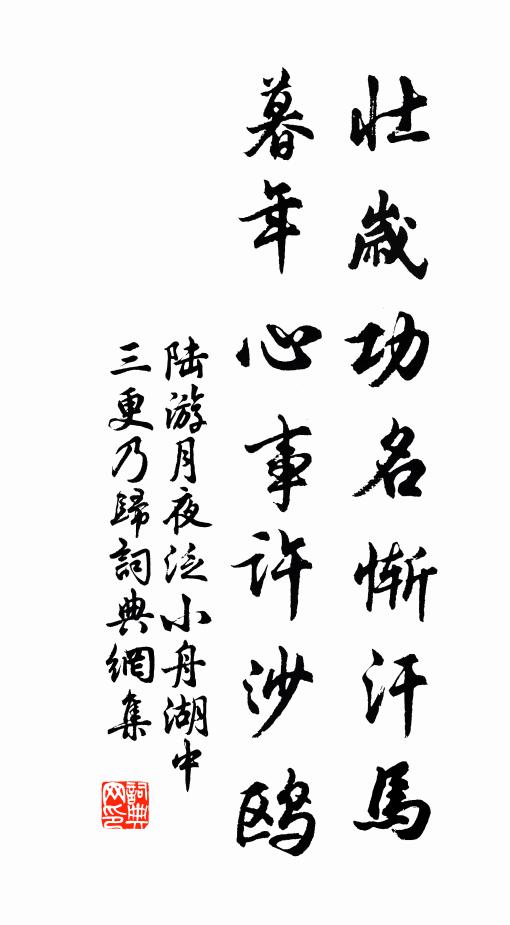 壮歲功名慚汗馬
暮年心事許沙鸥
陆游月夜泛小舟湖中
三更乃歸詞典網集
詞典网印